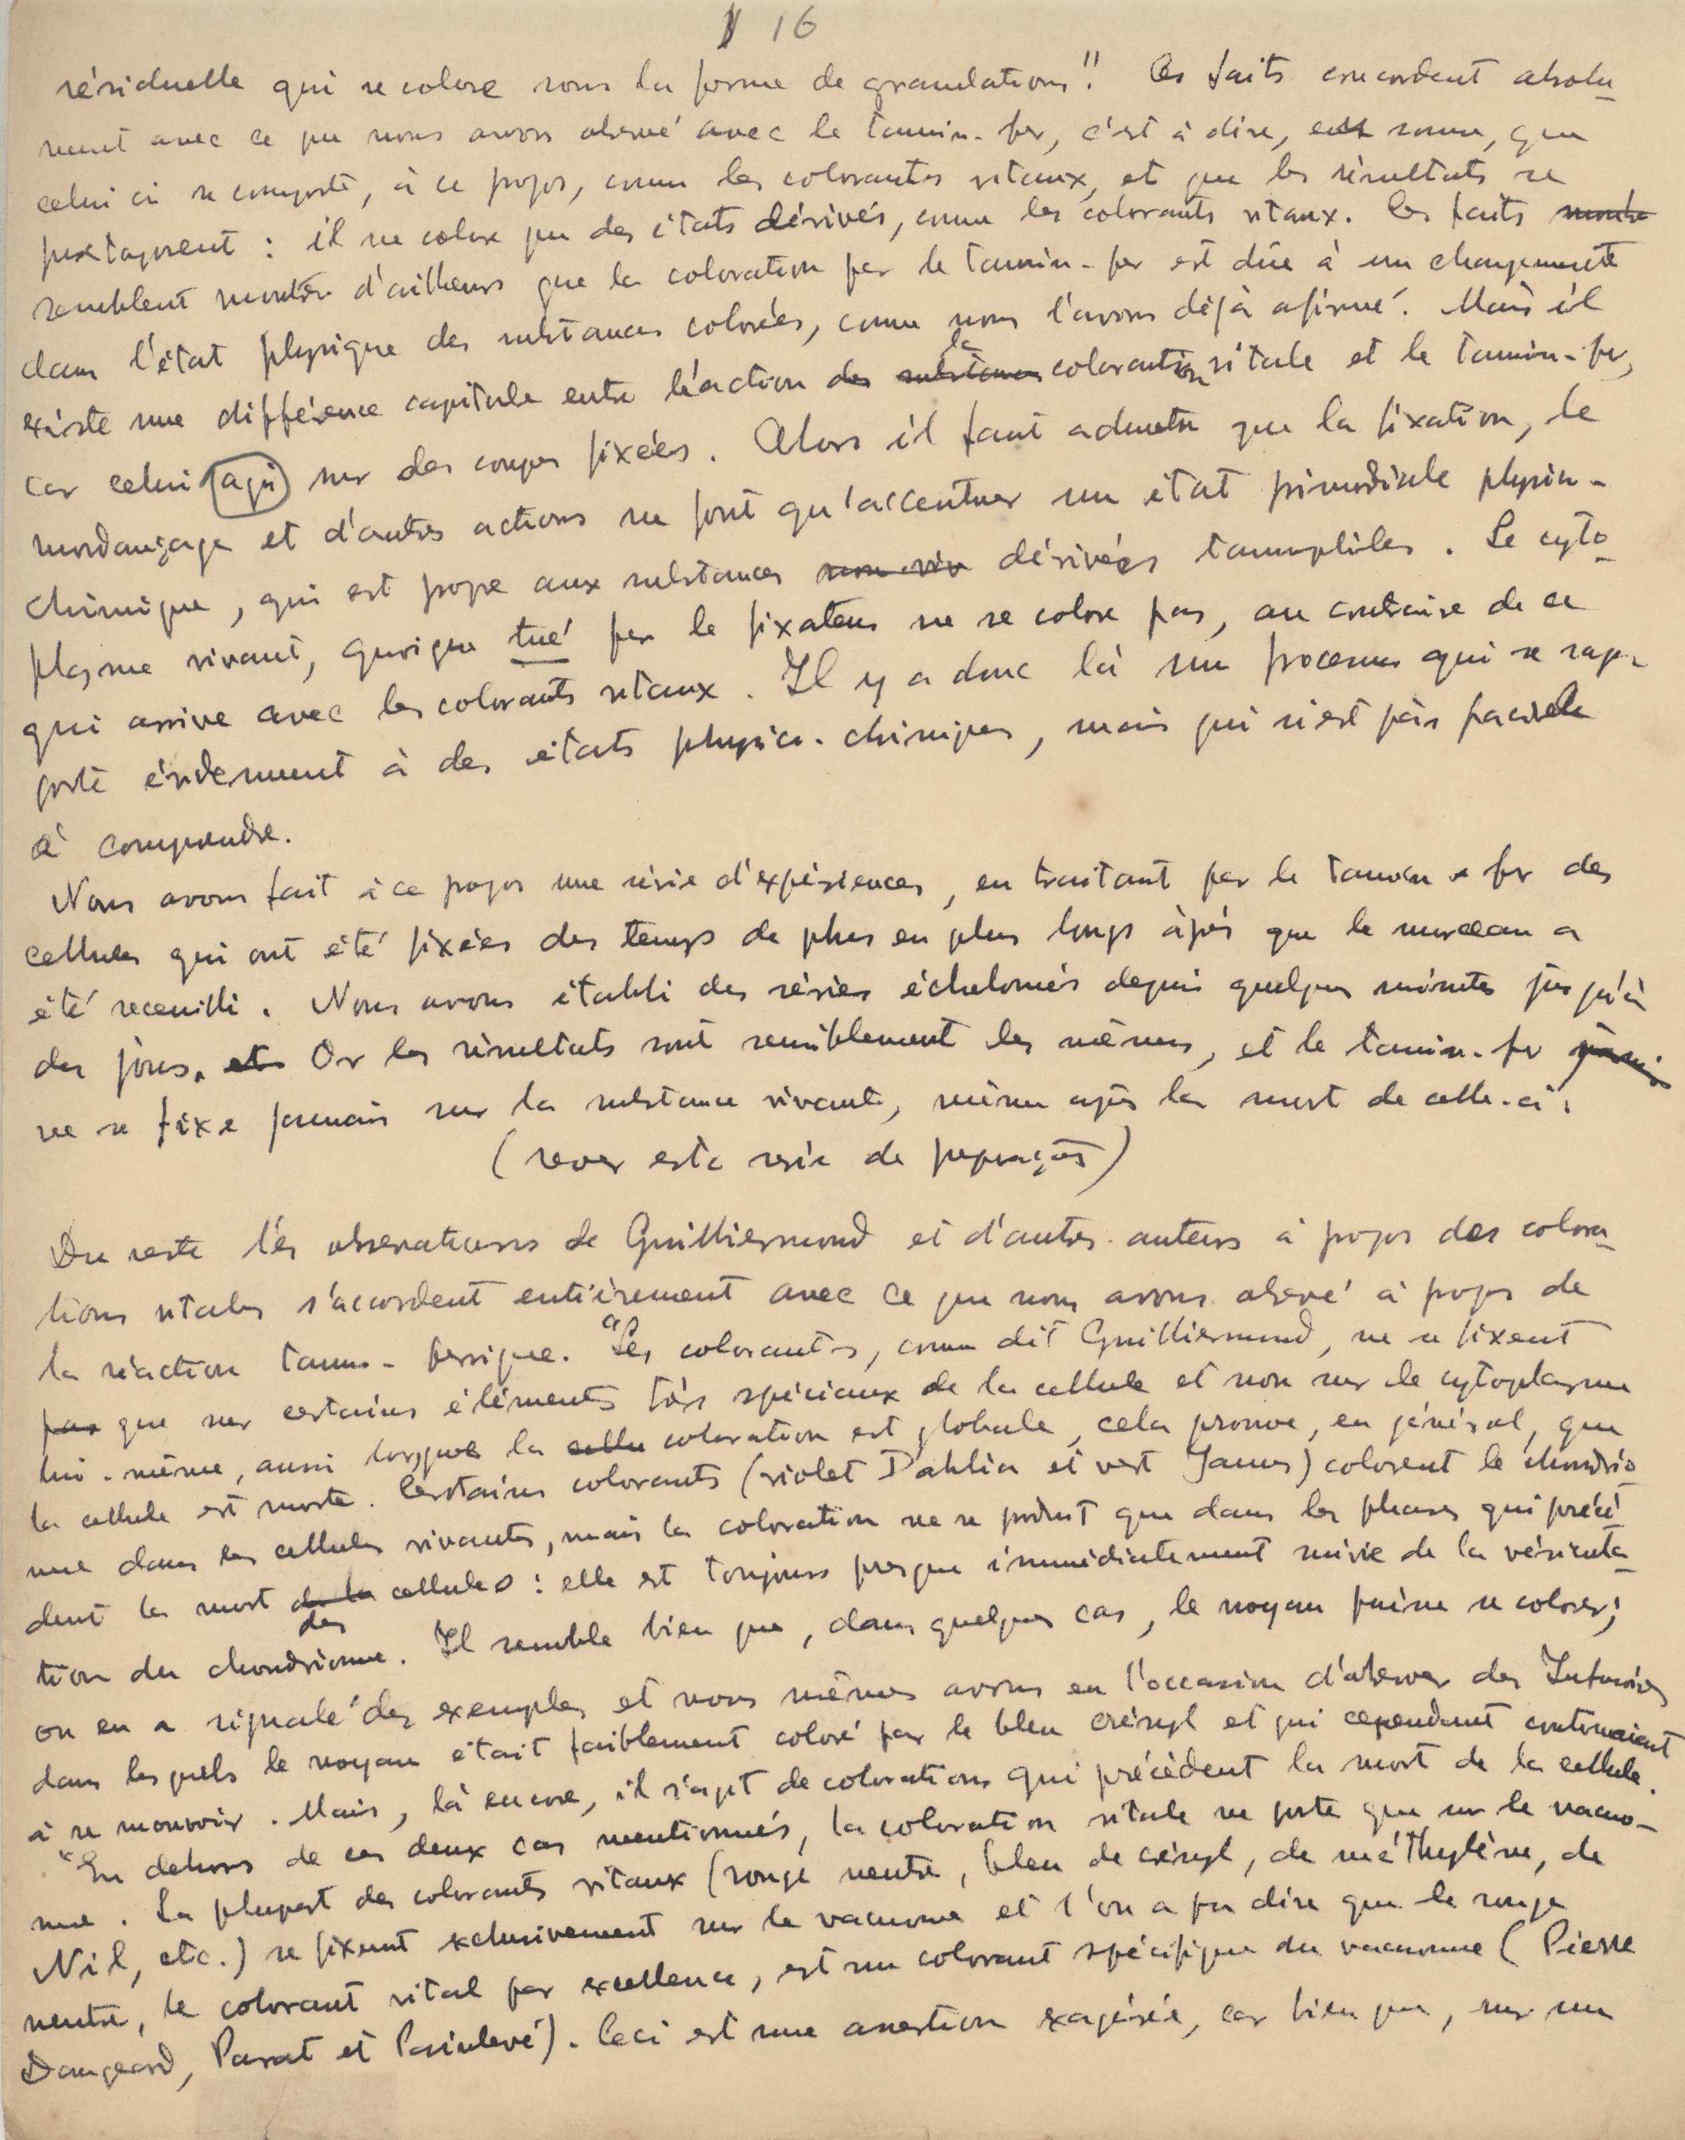 16
résiduelle qui se colore sous la forme de granulations". Ces faits concordent absolu-
ment avec ce que nous avons observé avec le tannin-fer, c'est à dire, en somme, que
celui ci se comporte, à ce propos, comme les colorantes vitaux, et que les résultats se
juxtaposent : il ne colore que des états dérivés, comme les colorants vitaux. Ces faits
semblent montrer d'ailleurs que la coloration par le tannin-fer est dûe à un changemente
dans l'état physique des substances colorées, comme nous l'avons déjà afirmé. Mais il
existe une différence capitale entre l'action de la coloration vitale et le tannin-fer,
car celui agit sur des coupes fixées. Alors il faut admettre que la fixation, le
mordançage et d'autres actions ne font qu'accentuer un état primordiale physico-
chimique, qui est propre aux substances dérivées tannophiles. Le cyto-
plasme vivant, quoique tué par le fixateur ne se colore pas, au contraire de ce
qui arrive avec les colorants vitaux. Il y a donc là un processus qui se rap-
porte évidemment à des états physico-chimiques, mais qui n'est pas facile
à comprendre.
Nous avons fait à ce propos une série d'expériences, en traitant par le tannin-fer des
cellules qui ont été fixées des temps de plus en plus longs après que le morceau a
été recueilli. Nous avons établi des séries échelonnés depuis quelques minutes jusqu'à
des jours. Or les résultats sont sensiblement les mêmes, et le tannin-fer
ne se fixe jamais sur la substance vivante, même après la mort de celle-ci.
(rever esta serie de preparações)
Du reste les observations de Guilliermond et d'autres auteurs à propos des colora-
tions vitales s'accordent entièrement avec ce que nous avons observé à propos de
la réaction tanno-ferrique. "Les colorants, comme dit Guilliermond, ne se fixent
que sur certains éléments très spéciaux de la cellule et non sur le cytoplasme
lui-même, aussi lorsque la coloration est globale, cela prouve, en général, que
la cellule est morte. Certains colorants (violet Dahlia et vert Janus) colorent le chondrio-
me dans les cellules vivantes, mais la coloration ne se produit que dans les phases qui précè-
dent la mort des cellules : elle est toujours presque immédiatement suivie de la vésicula-
tion du chondriome. Il semble bien que, dans quelques cas, le noyau puisse se colorer;
on en a signalé des exemples et nous mêmes avons eu l'occasion d'observer des Infusoires
dans lesquels le noyau était faiblement coloré par le bleu crésyl et qui cependant continuaient
à se mouvoir. Mais, là encore, il s'agit de colorations qui précèdent la mort de la cellule.
"En dehors de ces deux cas mentionnés, la coloration vitale ne porte que sur le vacuo-
me. La plupart des colorants vitaux (rouge neutre, bleu de crésyl, de méthylène, de
Nil, etc.) se fixent exclusivement sur le vacuome et l'on a pu dire que le rouge
neutre, le colorant vital par excellence, est un colorant spécifique du vacuome (Pierre
Dangeard, Parat et Painlevé). Ceci est une assertion exagérée, car bien que, sur un